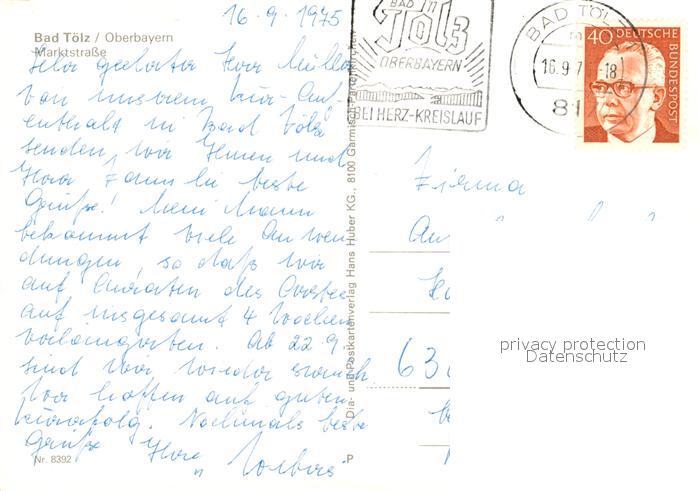 16.9.1975
Bad Tölz / Oberbayern
Marktstraße
Sehr geehrter Herr Müller
Von unserem Kur-Auf-
enthalt in Bad Tölz
senden wir Ihnen und
Herr beste
Grüße! Mein Mann
bekommt viele Anwen-
dungen, so daß wir
auf Anraten des Arztes
auf insgesamt 4 Wochen
verlängerten. Ab 22.9
sind wir wieder
Wir hoffen auf guten
Kurerfolg. Nochmals beste
Grüße Ihre
Nr. 8392
Dia- und Postkartenverlag Hans Huber KG., 8100 Garmisch-Partenkirchen
P
BAD TÖLZ
OBERBAYERN
BEI HERZ-KREISLAUF
BAD TÖLZ
16.9.7 18
81
40 DEUTSCHE
BUNDESPOST
Firma
An
63
privacy protection
Datenschutz